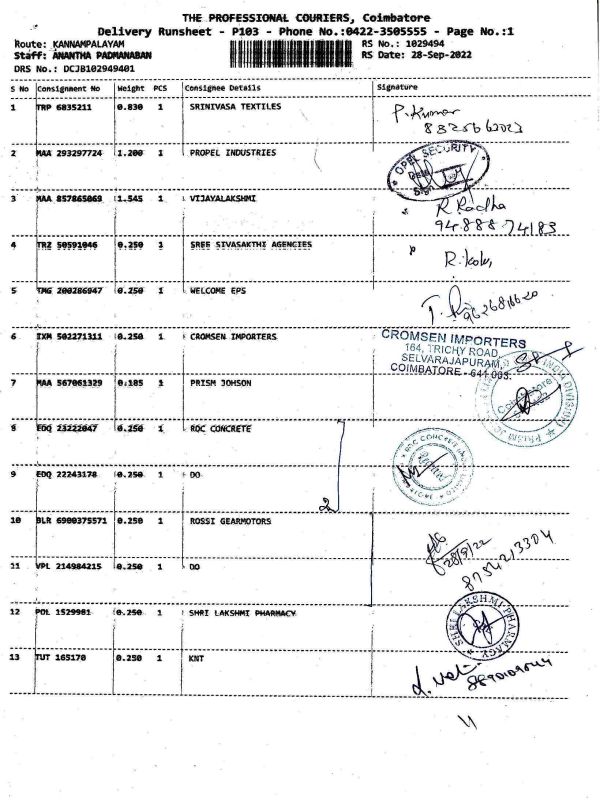 THE PROFESSIONAL COURIERS, Coimbatore
Delivery Runsheet - P103 - Phone No.:0422-3505555 - Page No.:1
Route: KANNAMPALAYAM RS No.: 1029494
Staff: ANANTHA PADMANABAN RS Date: 28-Sep-2022
DRS No.: DCJB102949401
S No Consignment No Weight PCS Consignee Details Signature
1 TRP 6835211 0.830 1 SRINIVASA TEXTILES
P. Kumar
2 MAA 293297724 1.200 1 PROPEL INDUSTRIES
OPEL SECURITY
Date
Sign
3 MAA 857865069 1.545 1 VIJAYALAKSHMI
R Radha
94888 74183
4 TRZ 50591046 0.250 1 SREE SIVASAKTHI AGENCIES
5 TMG 200286947 0.250 1 WELCOME EPS
6 IXM 502271311 0.250 1 CROMSEN IMPORTERS
CROMSEN IMPORTERS
164, TRICHY ROAD,
SELVARAJAPURAM,
COIMBATORE - 641 003.
7 MAA 567061329 0.185 1 PRISM JOHSON
8 EDQ 23222047 0.250 1 RDC CONCRETE
RDC CONCRETE
9 EDQ 22243178 0.250 1 DO
2
10 BLR 6900375571 0.250 1 ROSSI GEARMOTORS
28/9/22
8754213304
11 VPL 214984215 0.250 1 DO
12 POL 1529981 0.250 1 SHRI LAKSHMI PHARMACY
SHRI LAKSHMI PHARMACY
13 TUT 165170 0.250 1 KNT